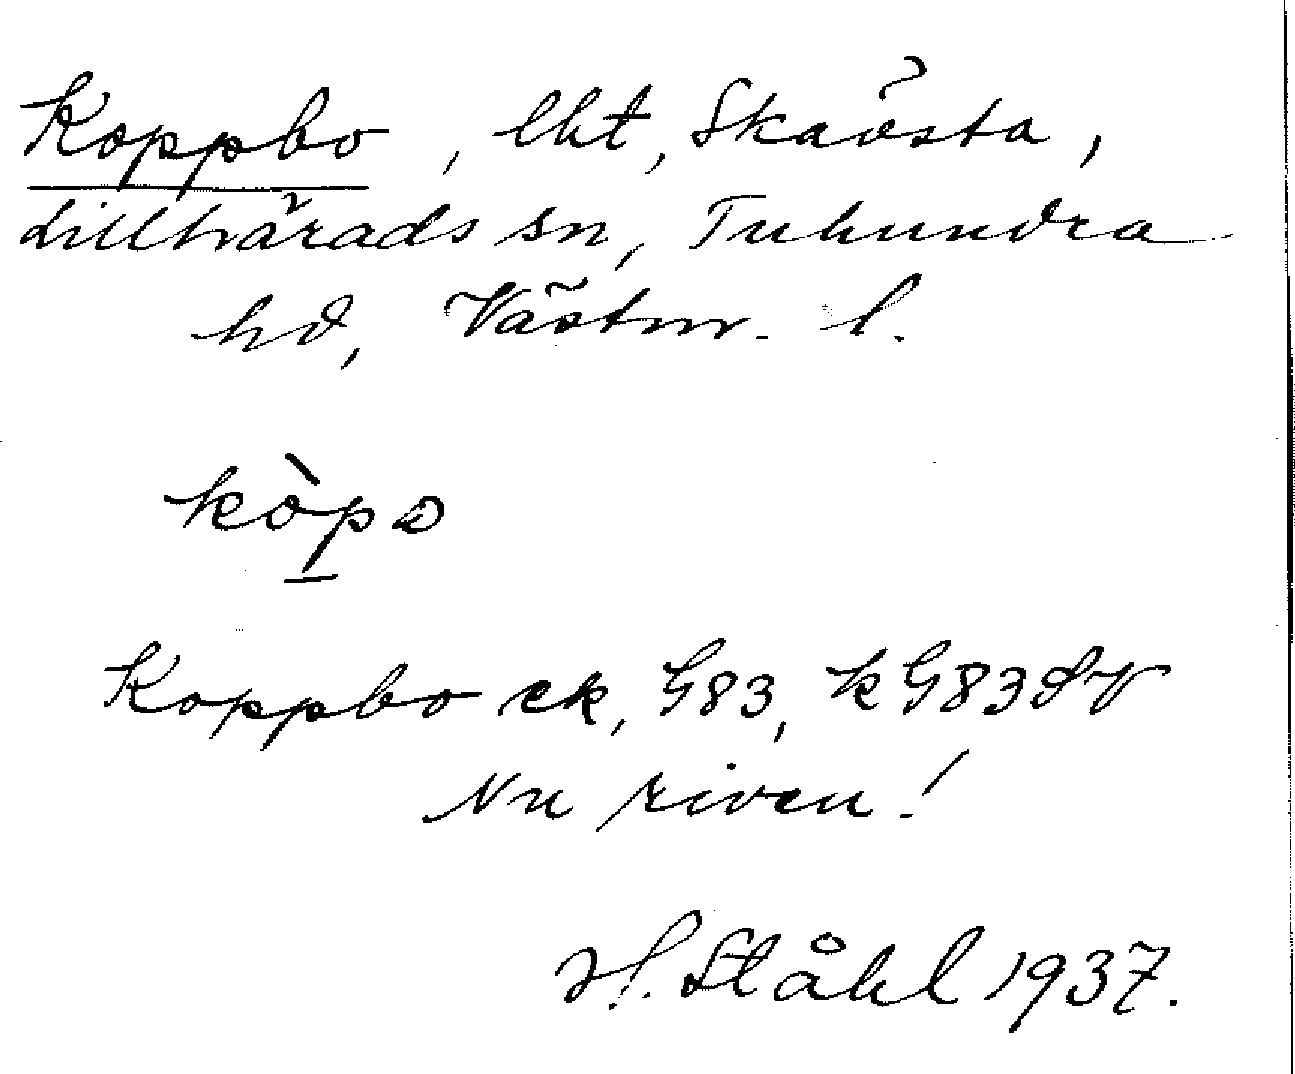 Koppbo, lht, Skaösta,
Lillhärads sn, Tuhundra
hd, Västm. l.
kòpo
Koppbo ek, G83, k G83SV
Nu riven!
H. Ståhl 1937.